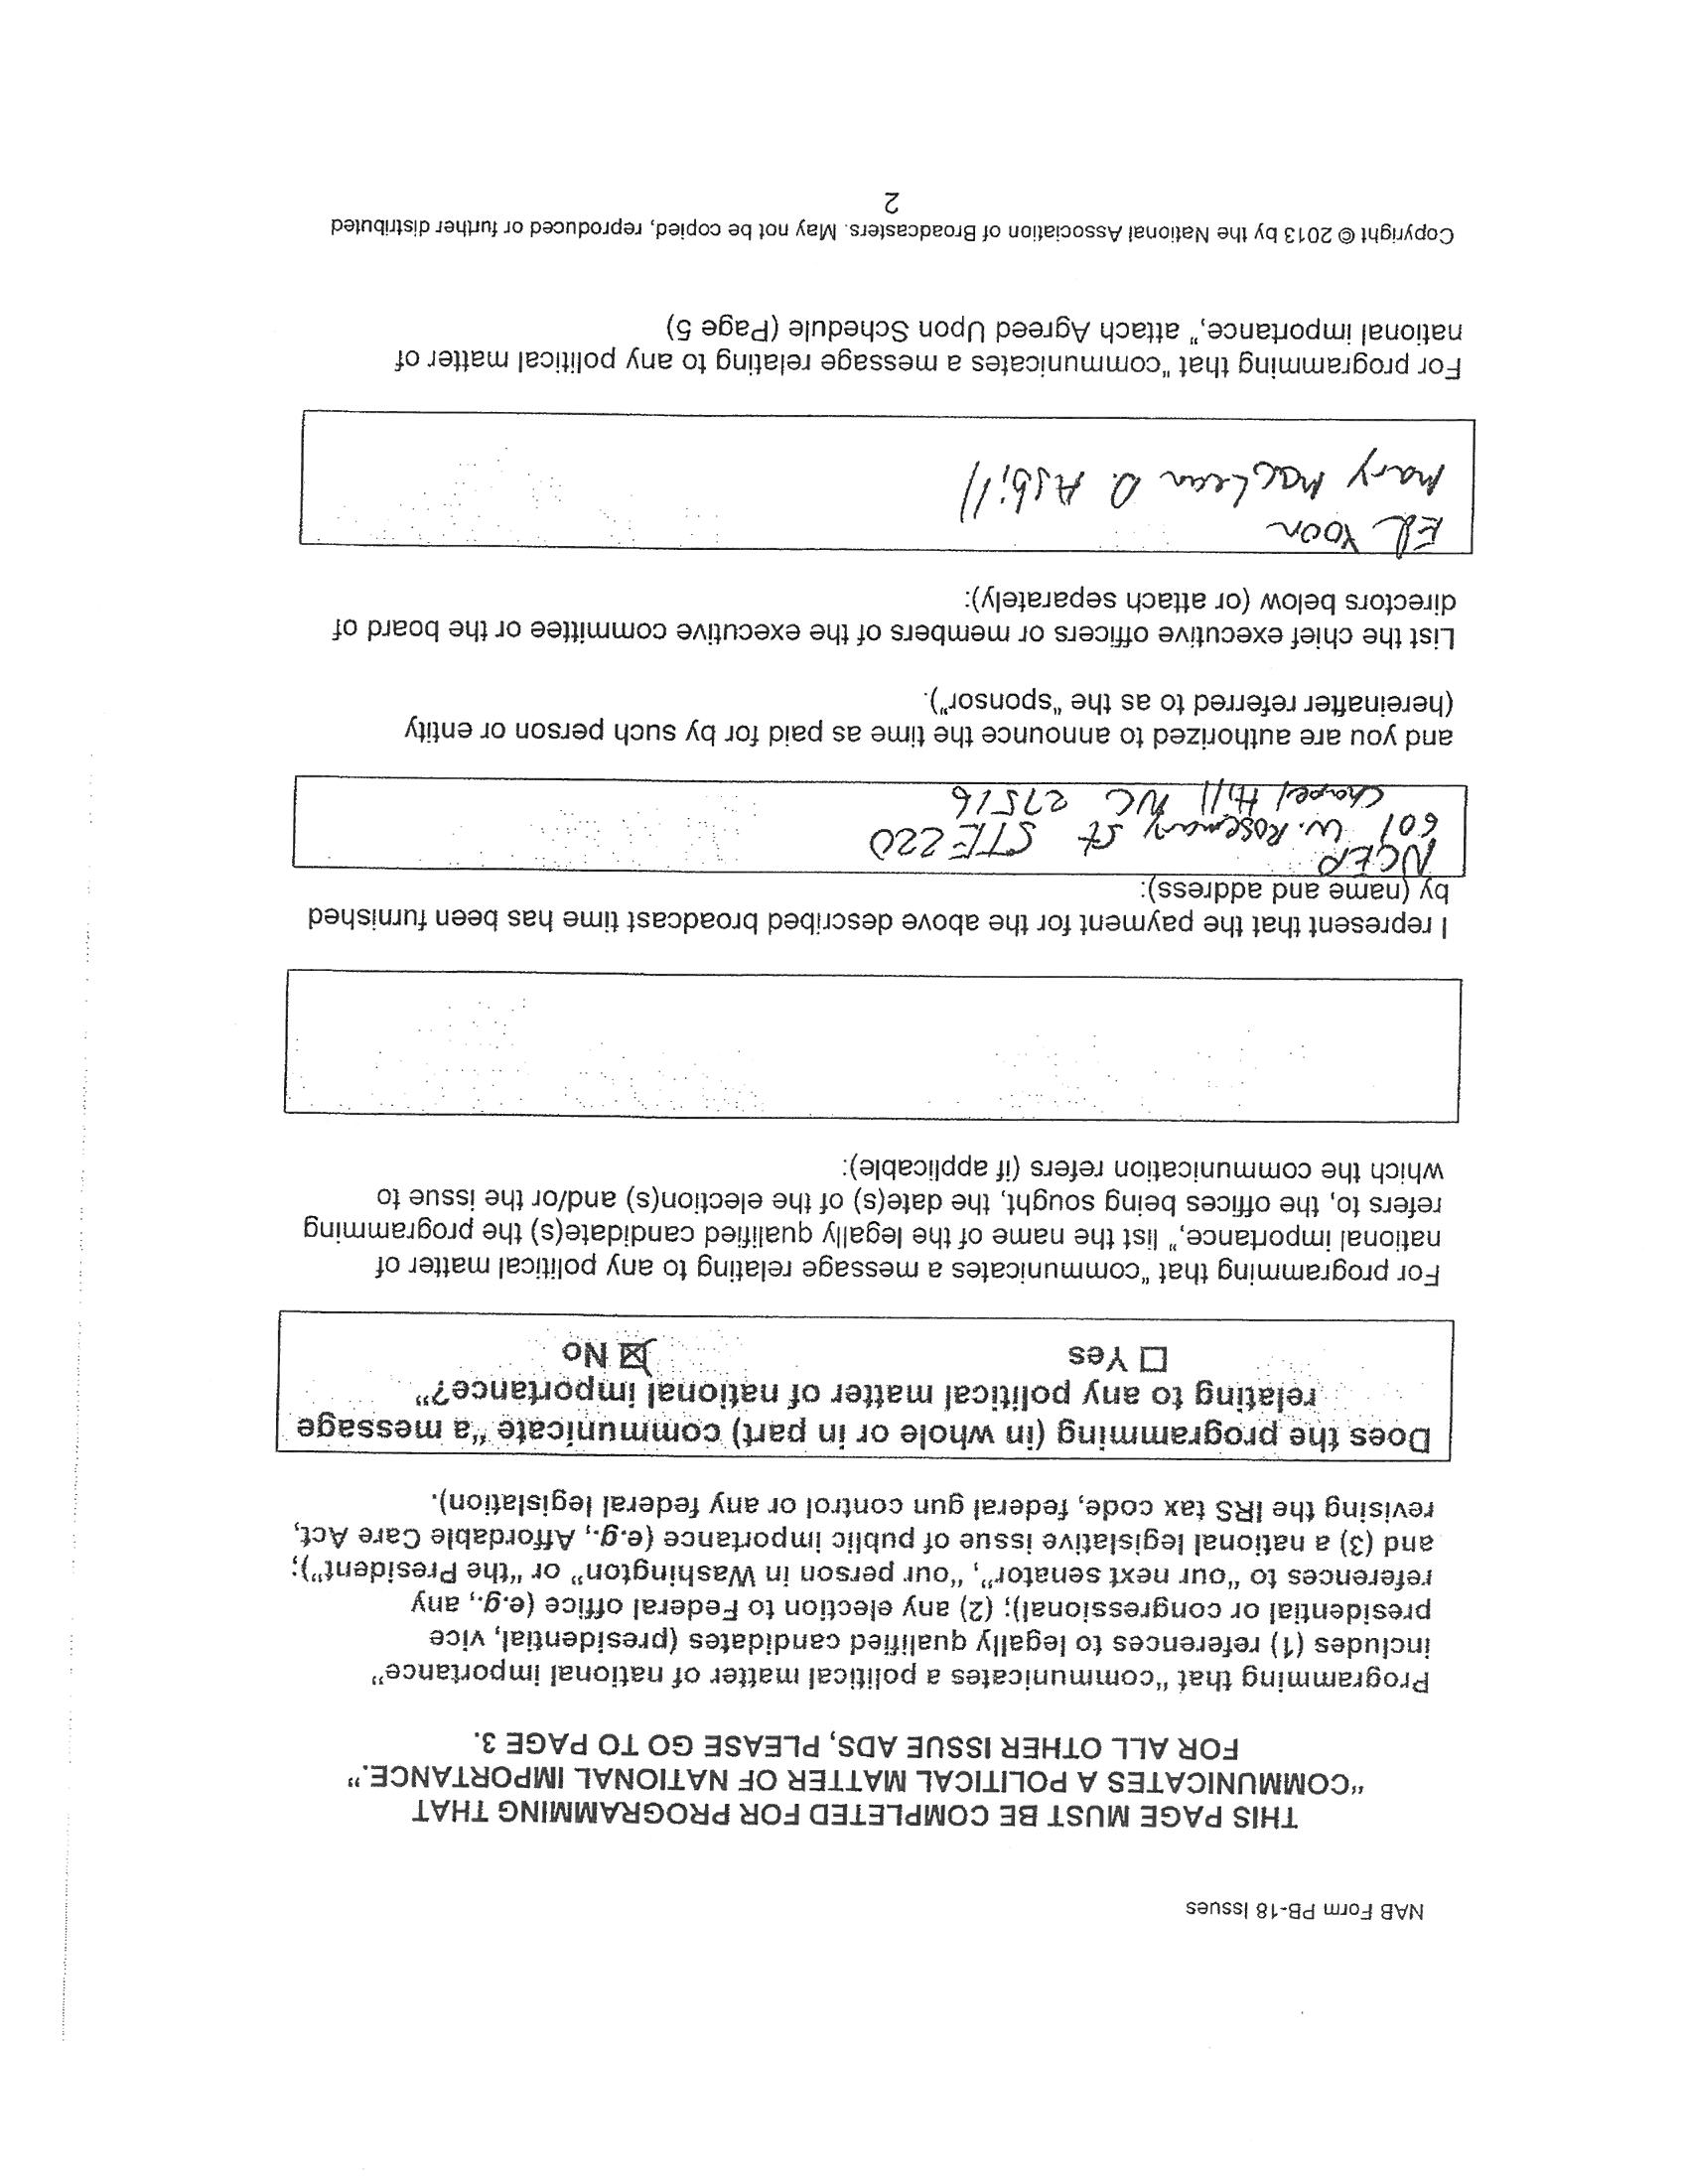 NAB Form PB-18 Issues
THIS PAGE MUST BE COMPLETED FOR PROGRAMMING THAT
“COMMUNICATES A POLITICAL MATTER OF NATIONAL IMPORTANCE.”
FOR ALL OTHER ISSUE ADS, PLEASE GO TO PAGE 3.
Programming that “communicates a political matter of national importance”
includes (1) references to legally qualified candidates (presidential, vice
presidential or congressional); (2) any election to Federal office (e.g., any
references to “our next senator”, “our person in Washington” or “the President”);
and (3) a national legislative issue of public importance (e.g., Affordable Care Act,
revising the IRS tax code, federal gun control or any federal legislation).
Does the programming (in whole or in part) communicate “a message
relating to any political matter of national importance?”
☐ Yes ☒ No
For programming that “communicates a message relating to any political matter of
national importance,” list the name of the legally qualified candidate(s) the programming
refers to, the offices being sought, the date(s) of the election(s) and/or the issue to
which the communication refers (if applicable):
I represent that the payment for the above described broadcast time has been furnished
by (name and address):
NCEP
601 W. Rosemary St STE 220
Chapel Hill NC 27516
and you are authorized to announce the time as paid for by such person or entity
(hereinafter referred to as the “sponsor”).
List the chief executive officers or members of the executive committee or the board of
directors below (or attach separately):
Ed Yoon
Mary MacLean D. Asbill
For programming that “communicates a message relating to any political matter of
national importance,” attach Agreed Upon Schedule (Page 5)
Copyright © 2013 by the National Association of Broadcasters. May not be copied, reproduced or further distributed
2